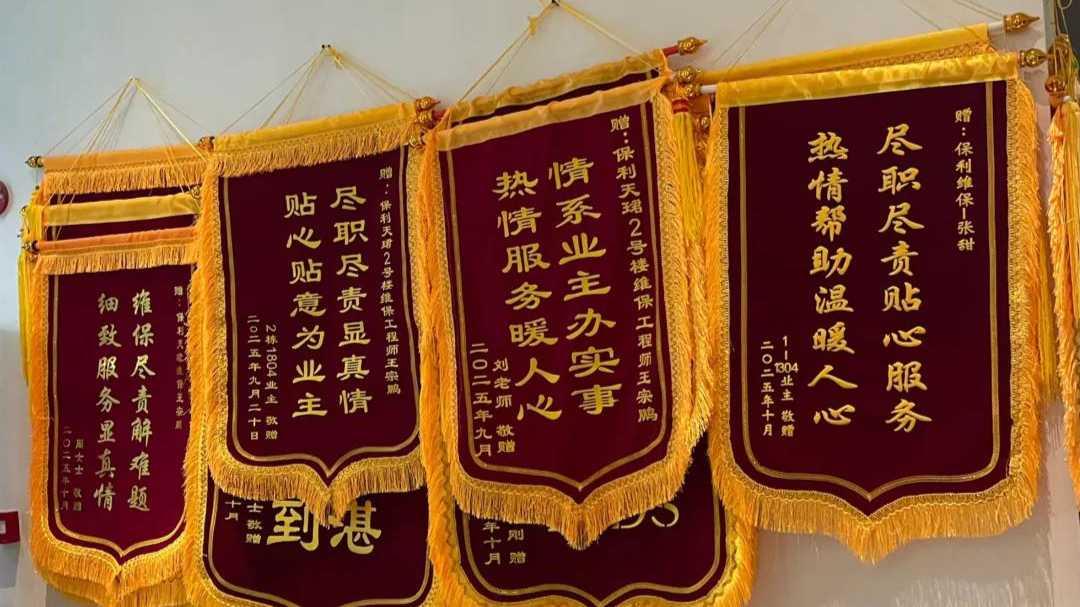 赠：保利天珺维修王宗鹏
维保尽责解难题
细致服务显真情
周女士 敬赠
二〇二五年十月
赠：保利天珺2号楼维保工程师王宗鹏
尽职尽责显真情
贴心贴意为业主
2栋1804业主 敬赠
二〇二五年九月二十日
赠：保利天珺2号楼维保工程师王宗鹏
情系业主办实事
热情服务暖人心
刘老师 敬赠
二〇二五年九月
赠：保利维保-张甜
尽职尽责贴心服务
热情帮助温暖人心
1-1304业主 敬赠
二〇二五年十月
堪
到
士 敬赠
十月
刚 赠
年十月